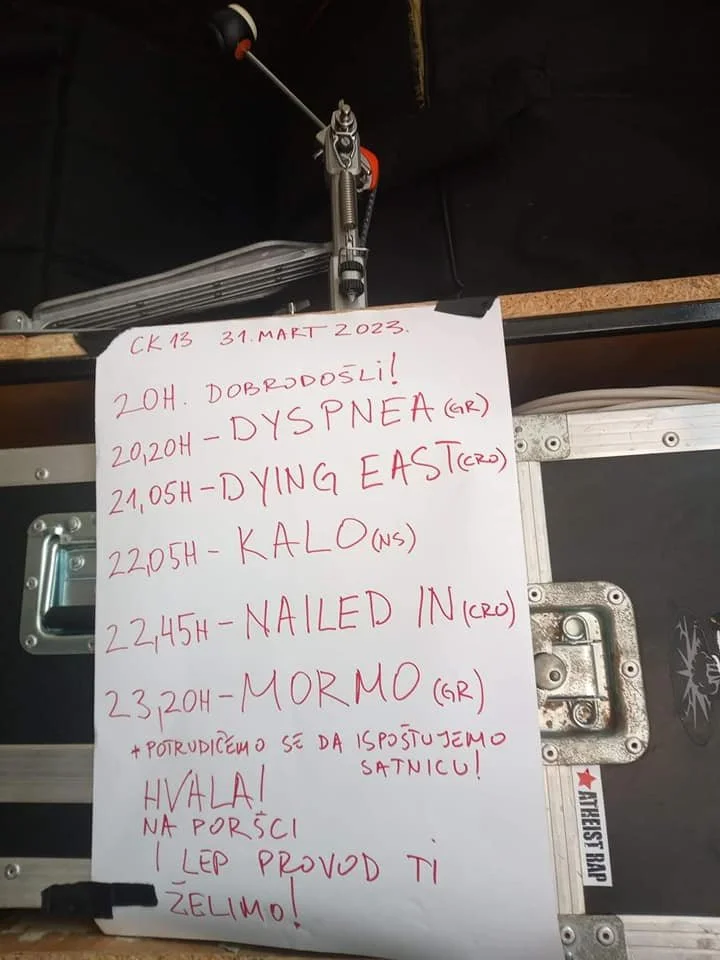 CK13 31. MART 2023.
20H. DOBRODOŠLI!
20,20H - DYSPNEA (GR)
21,05H - DYING EAST (CRO)
22,05H - KALO (NS)
22,45H - NAILED IN (CRO)
23,20H - MORMO (GR)
+ POTRUDIĆEMO SE DA ISPOŠTUJEMO
SATNICU!
HVALA!
NA PORŠCI
I LEP PROVOD TI
ŽELIMO!
ATHEIST RAP